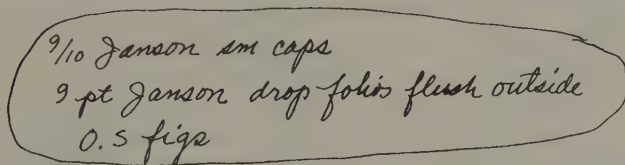 9/10 Janson sm caps
9 pt Janson drop folios flush outside
O.S figs